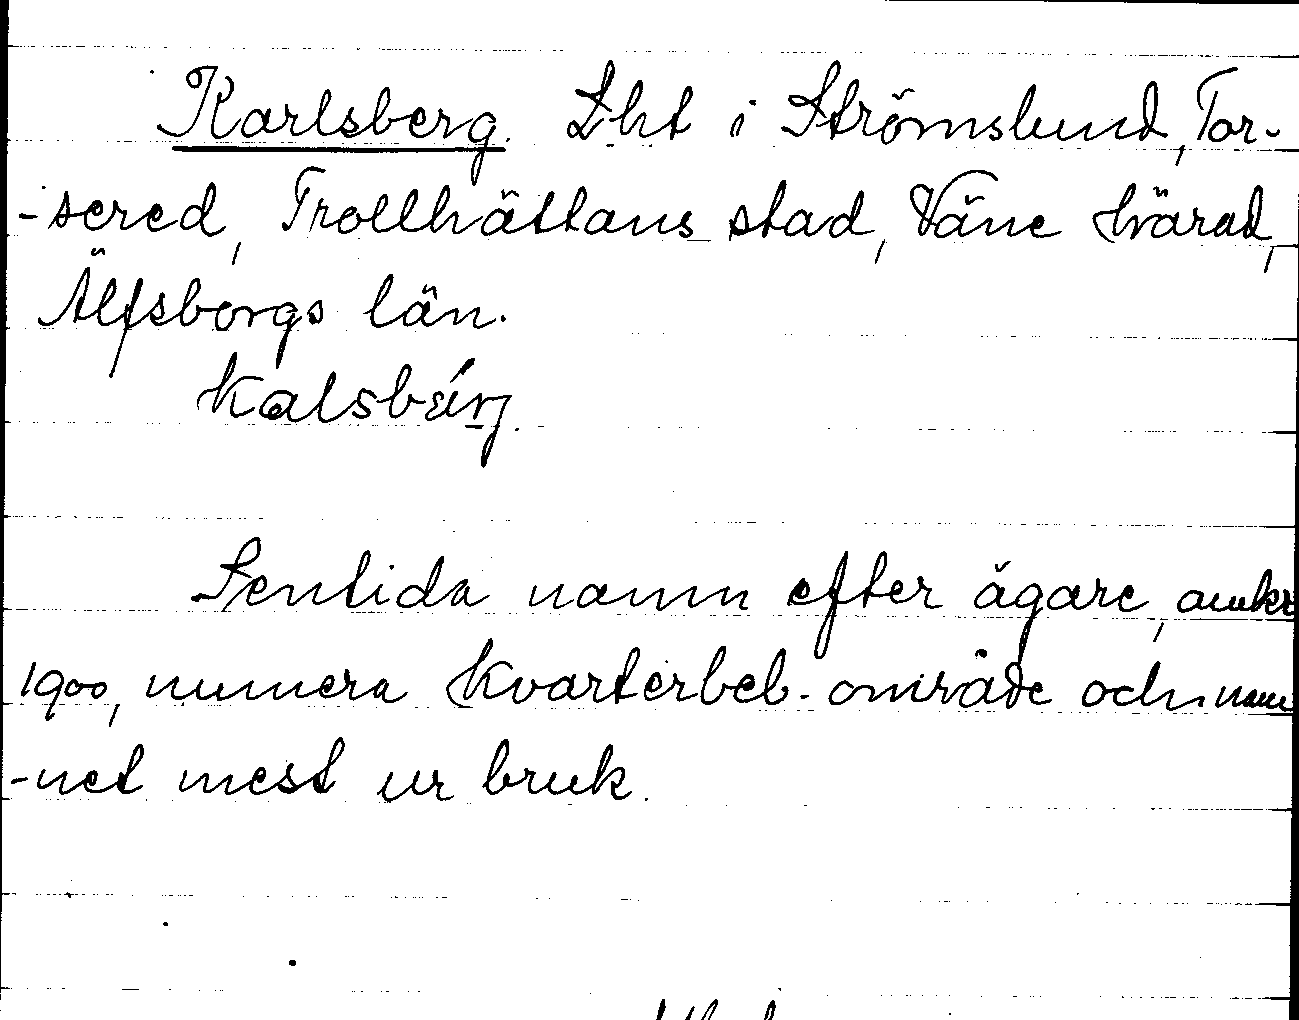 Karlsberg. Lht i Strömslund, Tor-
-sered, Trollhättans stad, Väne härad,
Älfsborgs län.
Kalsbärj.
Sentida namn efter ägare, omkr
1900, numera kvarterbeb. område och nam
-net mest ur bruk.